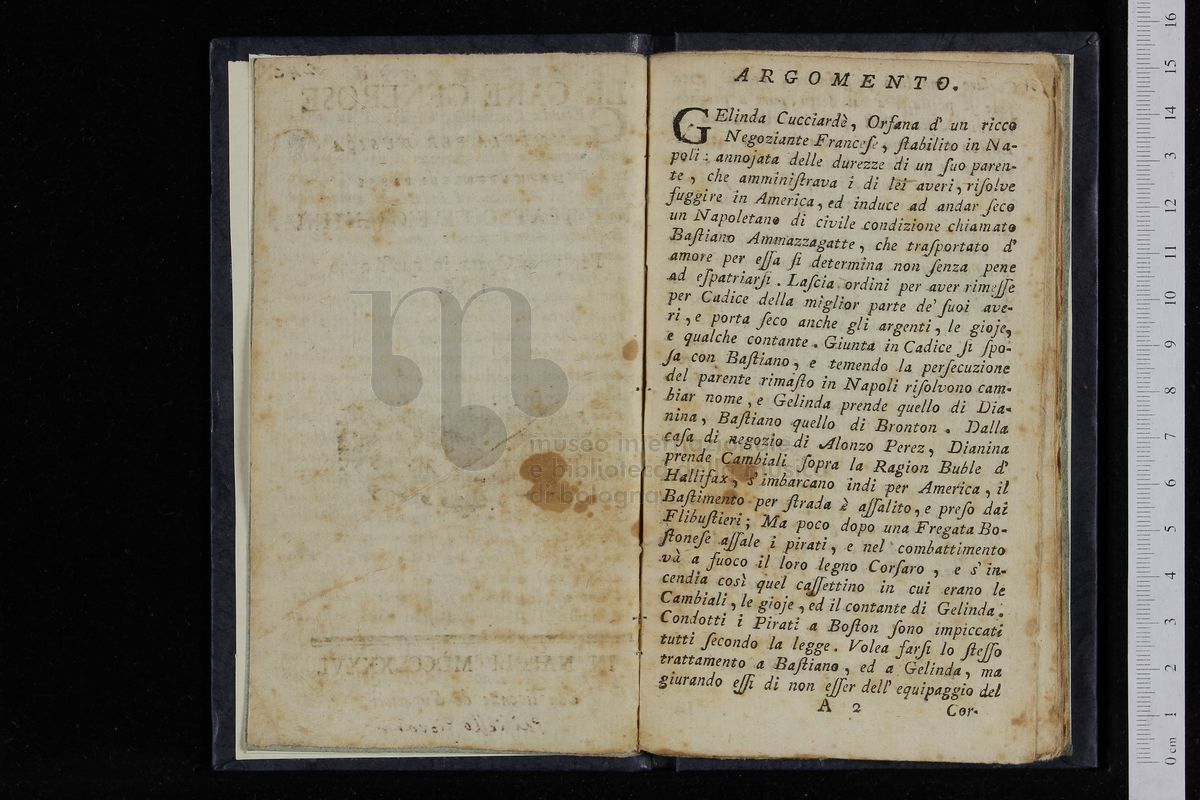 ARGOMENTO.
GElinda Cucciardè, Orfana d' un ricco
Negoziante Franceſe, ſtabilito in Na-
poli: annojata delle durezze di un ſuo paren-
te, che amminiſtrava i di lei averi, riſolve
fuggire in America, ed induce ad andar ſeco
un Napoletano di civile condizione chiamato
Baſtiano Ammazzagatte, che traſportato d'
amore per eſſa ſi determina non ſenza pene
ad eſpatriarſi. Laſcia ordini per aver rimeſſe
per Cadice della miglior parte de' ſuoi ave-
ri, e porta ſeco anche gli argenti, le gioje,
e qualche contante. Giunta in Cadice ſi ſpo-
ſa con Baſtiano, e temendo la perſecuzione
del parente rimaſto in Napoli riſolvono cam-
biar nome, e Gelinda prende quello di Dia-
nina, Baſtiano quello di Bronton. Dalla
caſa di negozio di Alonzo Perez, Dianina
prende Cambiali ſopra la Ragion Buble d'
Hallifax, s' imbarcano indi per America, il
Baſtimento per ſtrada è aſſalito, e preſo dai
Flibuſtieri; Ma poco dopo una Fregata Bo-
ſtoneſe aſſale i pirati, e nel combattimento
và a fuoco il loro legno Corſaro, e s' in-
cendia così quel caſſettino in cui erano le
Cambiali, le gioje, ed il contante di Gelinda.
Condotti i Pirati a Boſton ſono impiccati
tutti ſecondo la legge. Volea farſi lo ſteſſo
trattamento a Baſtiano, ed a Gelinda, ma
giurando eſſi di non eſſer dell' equipaggio del
A 2 Cor-
museo internazionale
e biblioteca della musica
di bologna
0 cm 1 2 3 4 5 6 7 8 9 10 11 12 13 14 15 16